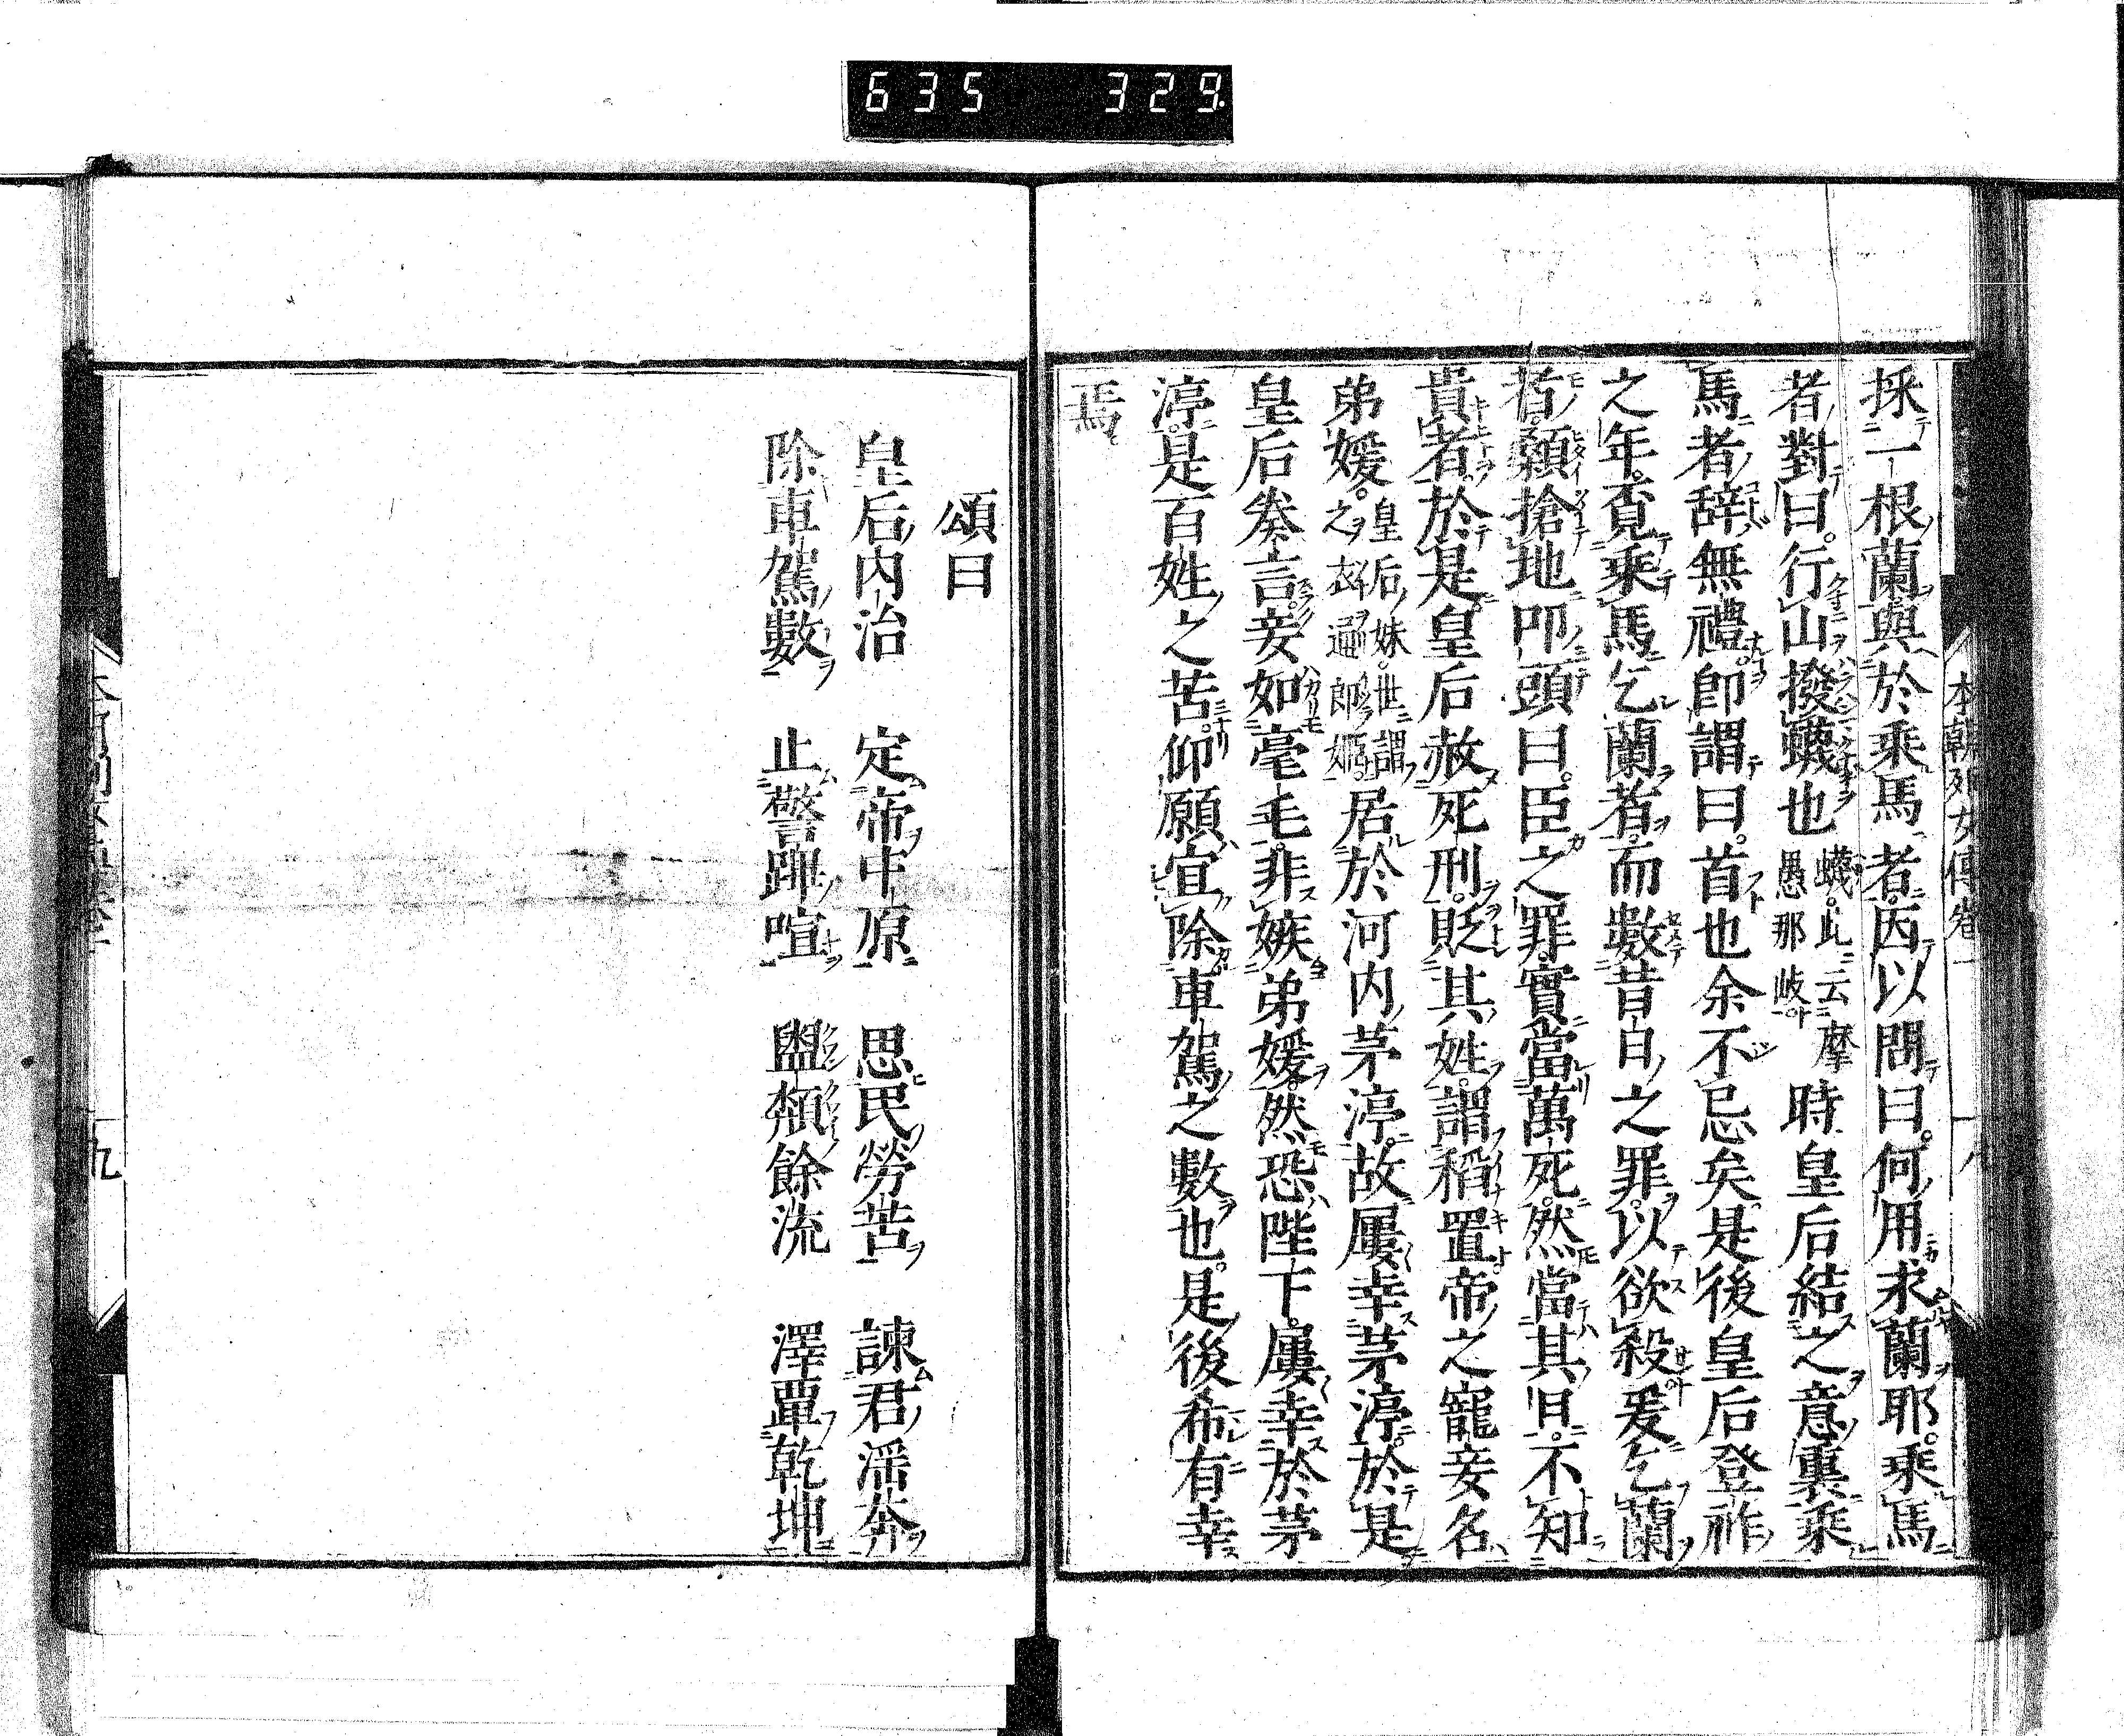 635 329
本朝列女傳卷一
八
採一根蘭與於乘馬者因以問曰何用求蘭耶乘馬
者對曰行山撥蠛也蠛此云摩愚那岐時皇后結之意裏乘
馬者辭無禮即謂曰首也余不忘矣是後皇后登祚
之年覓乘馬乞蘭者而數昔日之罪以欲殺爰乞蘭
者顙搶地叩頭曰臣之罪實當萬死然當其日不知
貴者於是皇后赦死刑貶其姓謂稻置帝之寵妾名
弟媛皇后妹世謂之衣通郎姬居於河内茅渟故屢幸茅渟於是
皇后奏言妾如毫毛非嫉弟媛然恐陛下屢幸於茅
渟是百姓之苦仰願宜除車駕之數也是後希有幸
焉
頌曰
皇后内治 定帝中原 思民勞苦 諫君淫奔
除車駕數 止警蹕喧 盥頮餘流 澤覃乾坤
九